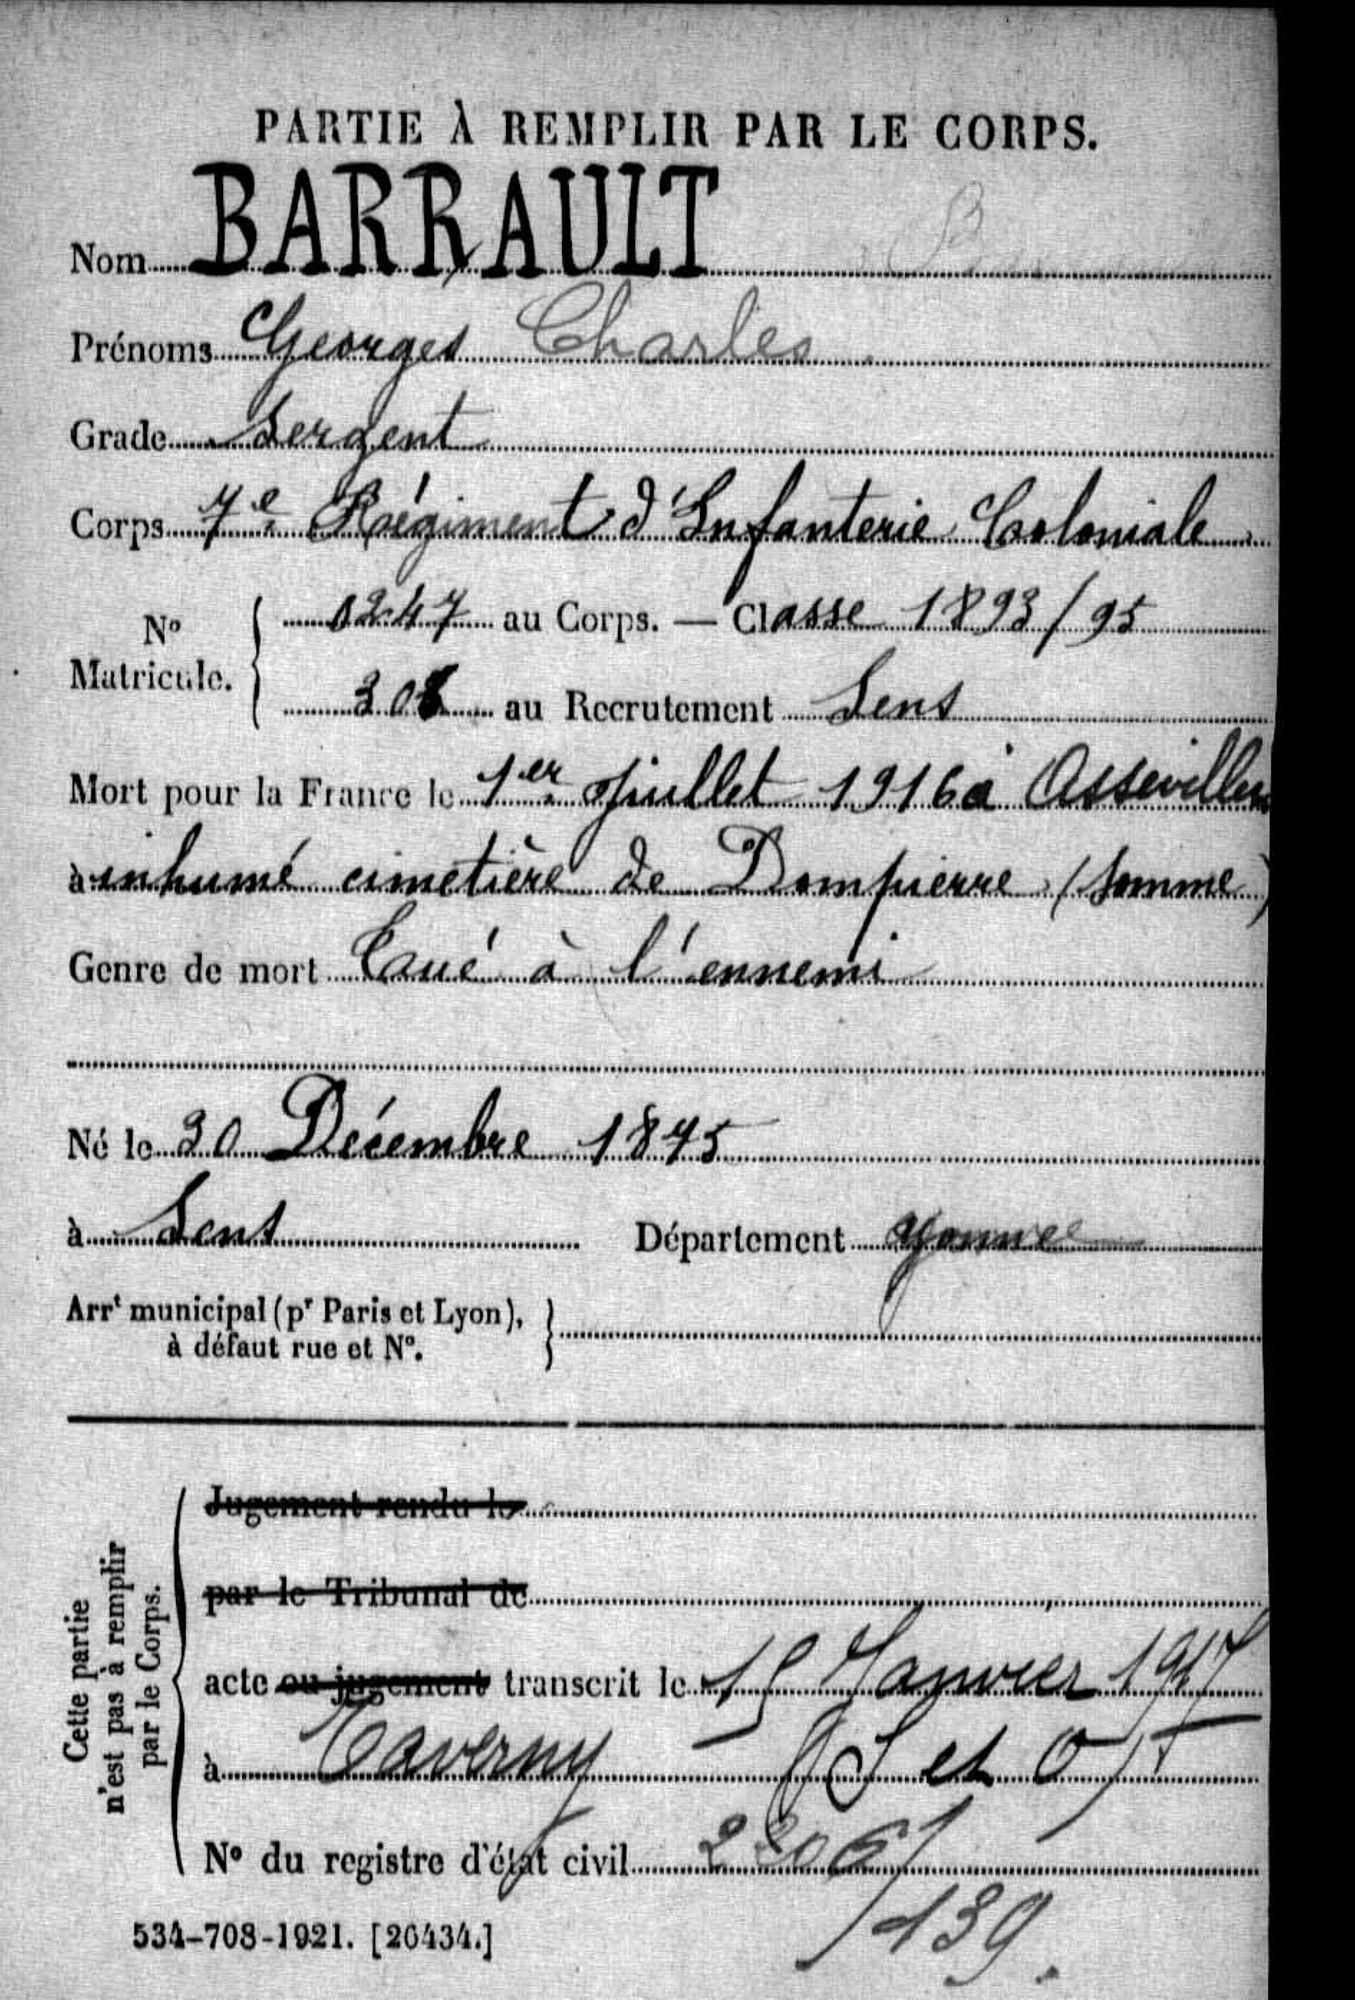 PARTIE À REMPLIR PAR LE CORPS.
Nom BARRAULT
Prénoms Georges Charles
Grade Sergent
Corps 7e Régiment d'Infanterie Coloniale
No Matricule.
0247 au Corps. — Classe 1893/95
308 au Recrutement Sens
Mort pour la France le 1er Juillet 1916 à Assevillers
à inhumé cimetière de Dompierre (Somme)
Genre de mort Tué à l'ennemi
Né le 30 Décembre 1875
à Sens Département Yonne
Arrt municipal (pr Paris et Lyon),
à défaut rue et No.
Cette partie
n'est pas à remplir
par le Corps.
Jugement rendu le
par le Tribunal de
acte ou jugement transcrit le 15 Janvier 1917
à Taverny (S et O)
No du registre d'état civil
139.
534-708-1921. [26434.]